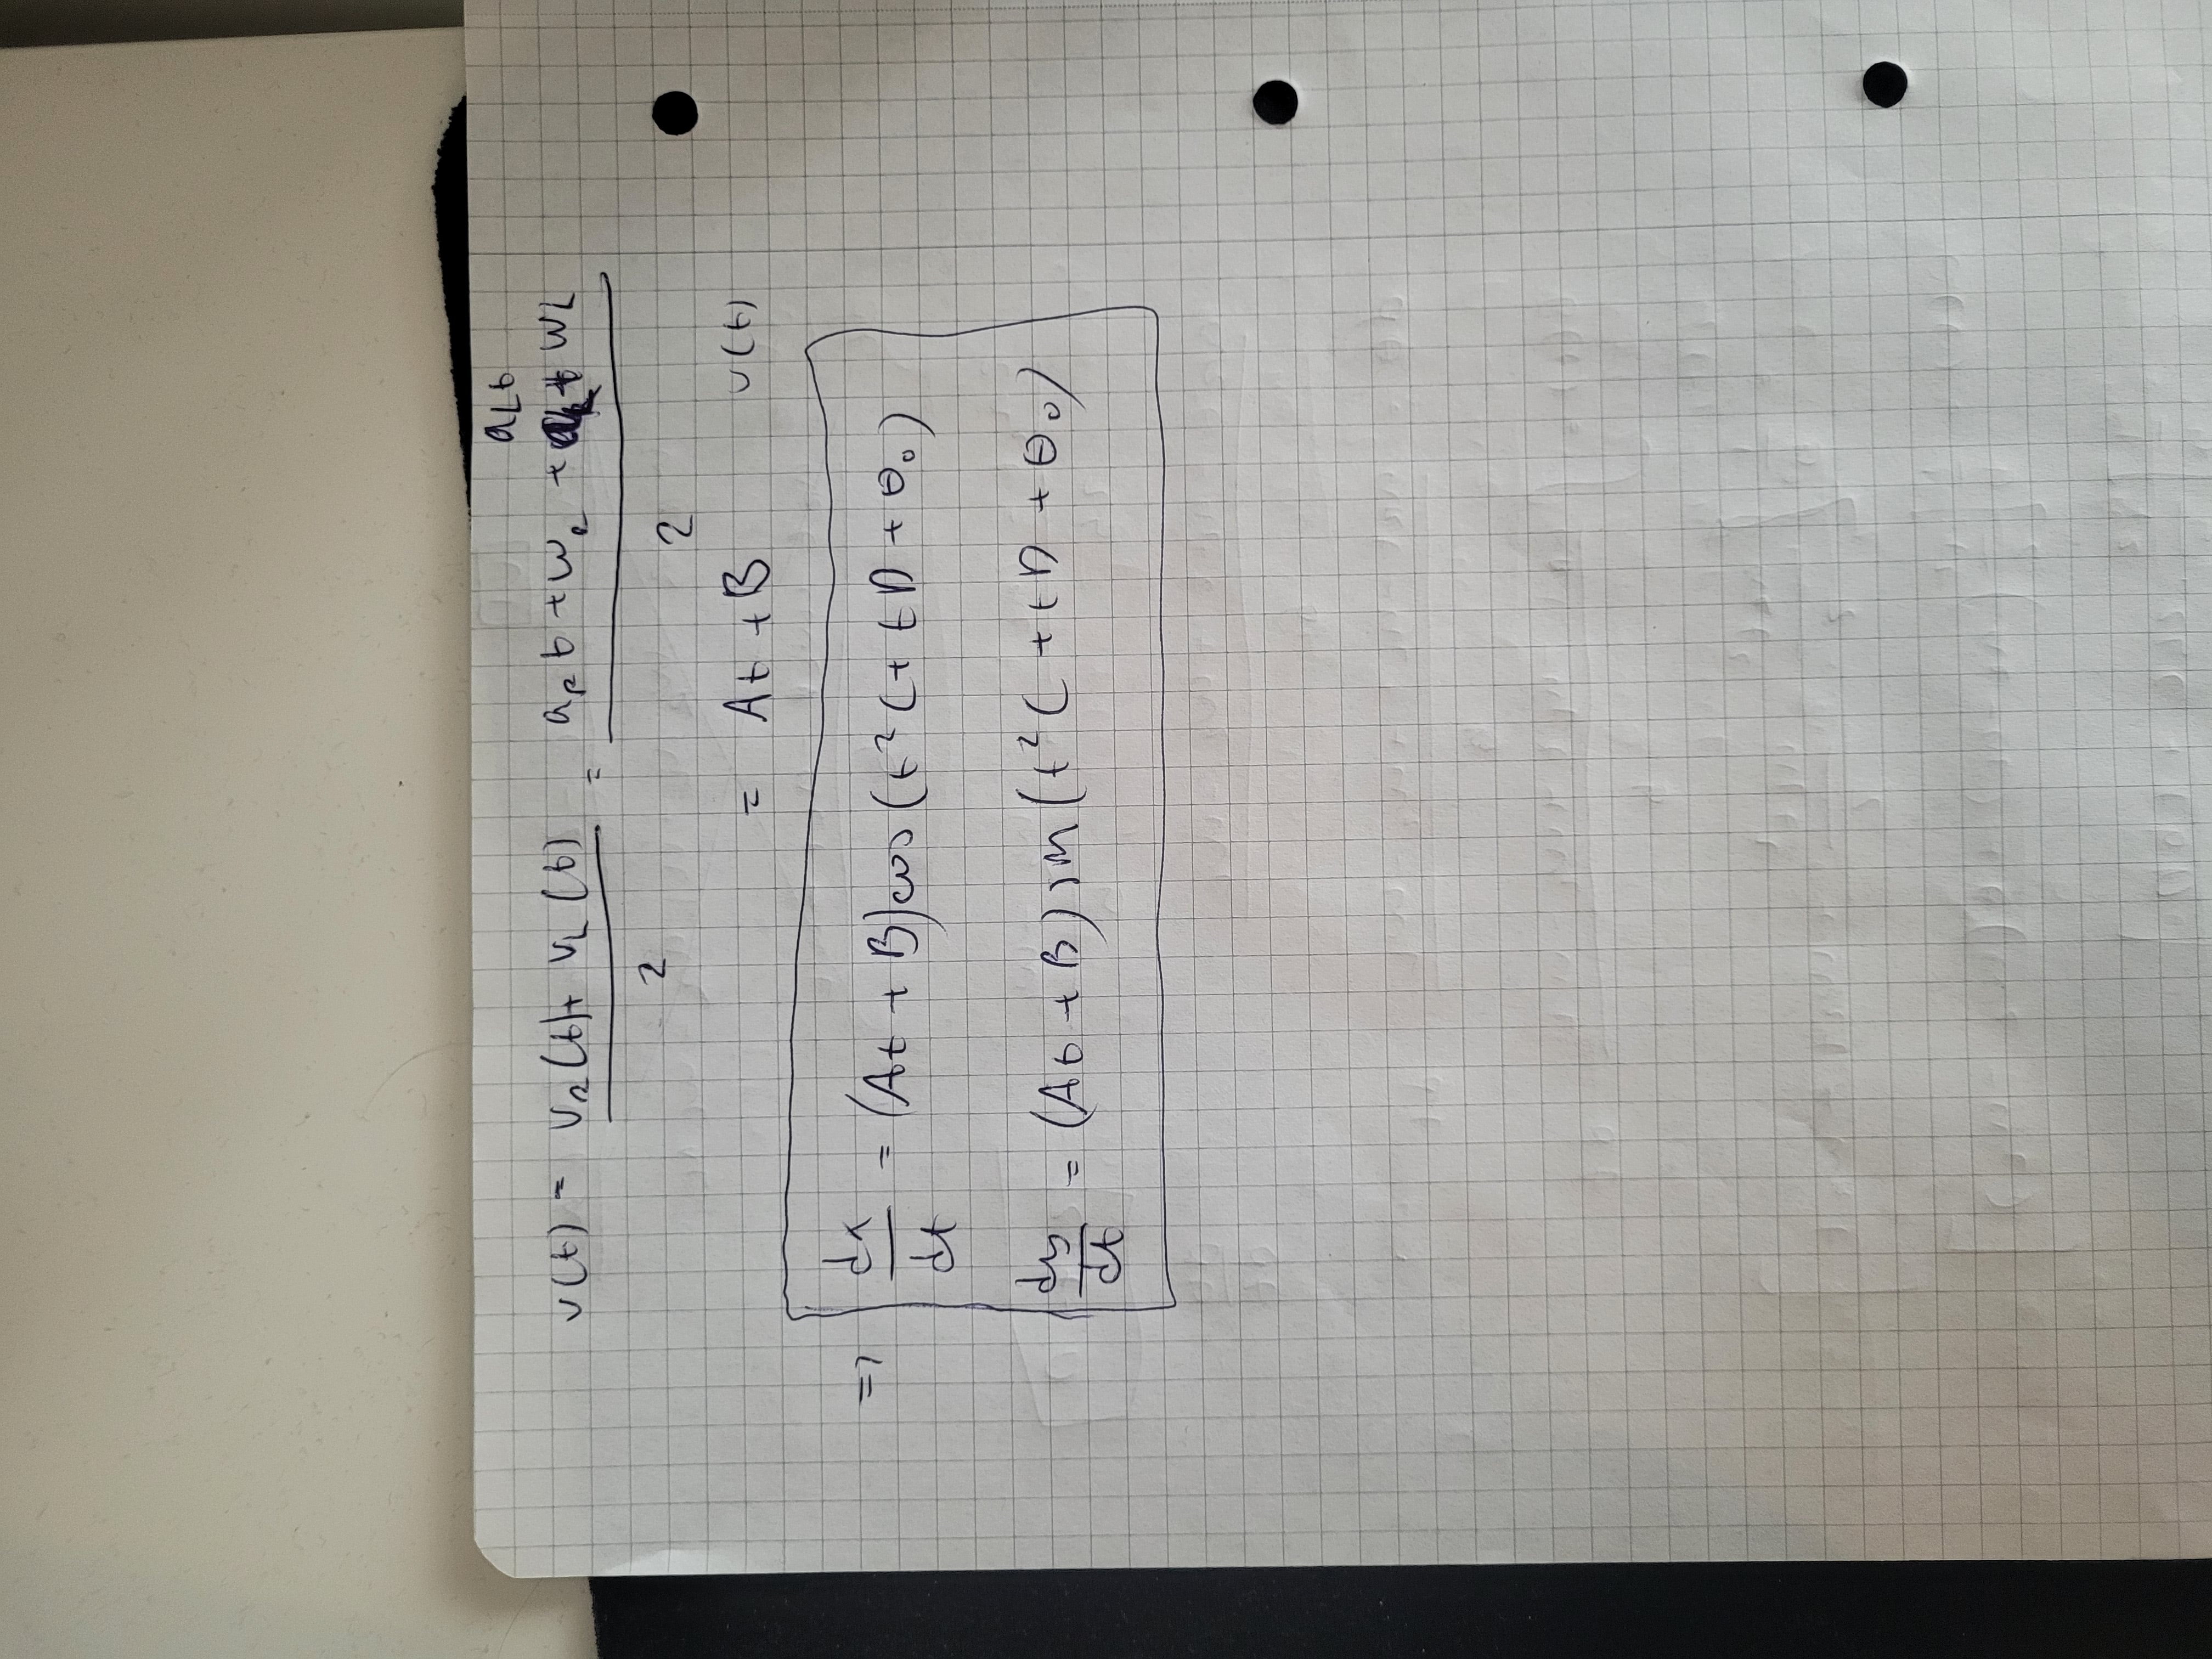 v(t) = (v_R(t) + v_L(t)) / 2 = (a_R t + w_R + a_L t + w_L) / 2
= At + B v(t)
=> dx/dt = (At + B) cos(t² C + tD + θ₀)
dy/dt = (At + B) sin(t² C + tD + θ₀)